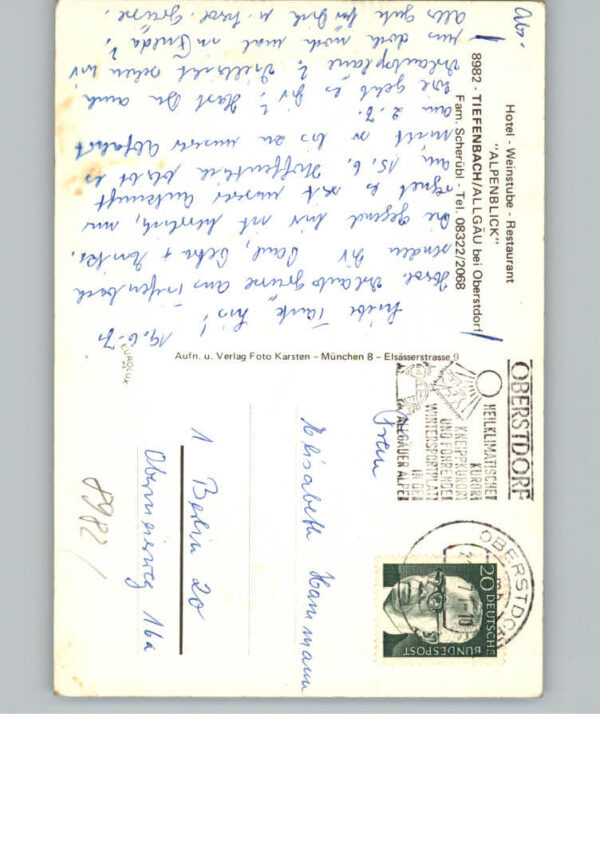 Hotel - Weinstube - Restaurant
"ALPENBLICK"
8982 - TIEFENBACH/ALLGÄU bei Oberstdorf
Fam. Scherübl - Tel. 08322/2068
19.6.71
Liebe Tante "Lis"!
Herzl. Urlaubsgrüsse aus Tiefenbach
senden Dir Paul, Petra + Enkel.
Die Gegend hier ist herrlich, nur
regnet es seit unserer Ankunft
am 15.6. Hoffentlich bleibt es
nicht so bis zu unserer Abfahrt
am 2.7.
Wie geht's Dir? Hast Du auch
Urlaubspläne? Vielleicht sehen wir
uns doch noch mal in Fulda?
Alles Gute für Dich u. herzl. Grüsse.
Aufn. u. Verlag Foto Karsten - München 8 - Elsässerstrasse 9
EUROLUX
OBERSTDORF
HEILKLIMATISCHER
KURORT
KNEIPPKURORT
UND FÜHRENDER
WINTERSPORTPLATZ
IN DEN
ALLGÄUER ALPEN
OBERSTDORF
20
DEUTSCHE
BUNDESPOST
Frau
Elisabeth Hanmann
1 Berlin 20
Obermeierweg 16a
8982/